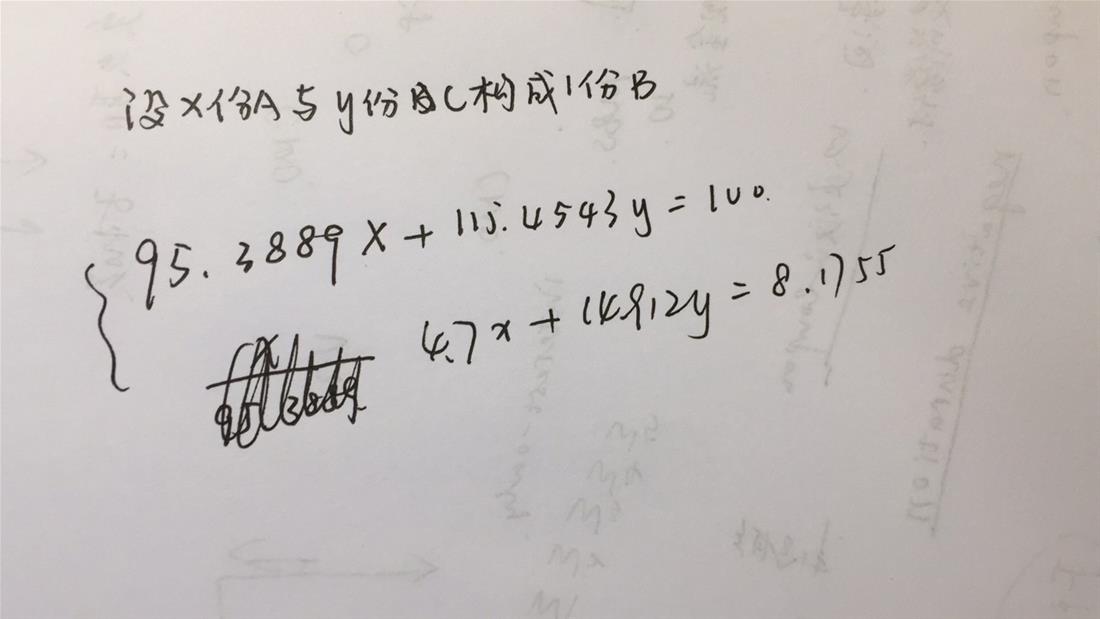 设x份A与y份C构成1份B
95.3889x+115.4543y=100.
4.7x+14.912y=8.1755